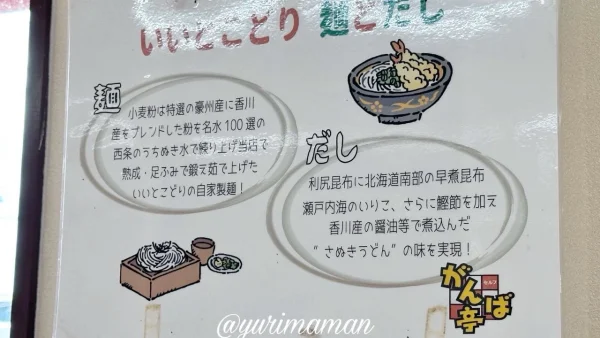 いいとこどり 麺とだし
麺
小麦粉は特選の豪州産に香川
産をブレンドした粉を名水100選の
西条のうちぬき水で練り上げ当店で
熟成・足ふみで鍛え茹で上げた
いいとこどりの自家製麺！
だし
利尻昆布に北海道南部の早煮昆布
瀬戸内海のいりこ、さらに鰹節を加え
香川産の醤油等で煮込んだ
"さぬきうどん"の味を実現！
セルフ
がんば亭
@yurimaman